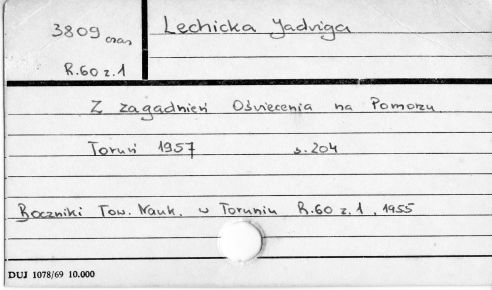 3809 czas
Lechicka Jadwiga
R.60 z.1
Z zagadnień Oświecenia na Pomorzu
Toruń 1957 s.204
Roczniki Tow. Nauk. w Toruniu R.60 z.1, 1955
DUJ 1078/69 10.000